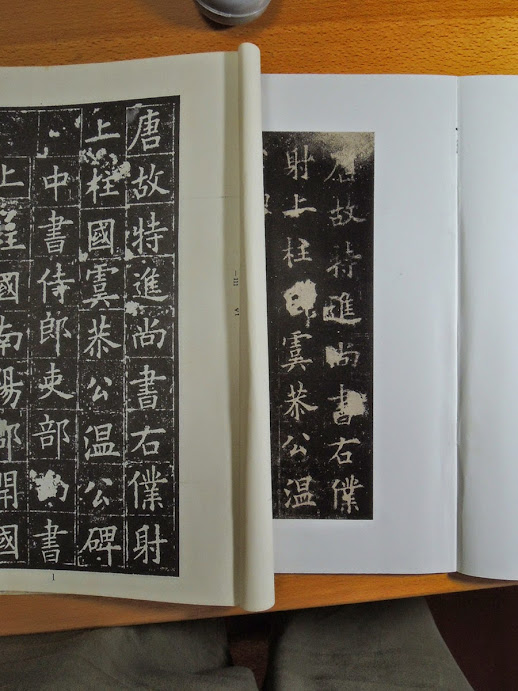 唐故特進尚書右僕
射上柱虞恭公温
唐故特進尚書右僕射
上柱國虞恭公温公碑
中書侍郎吏部書
上柱國南陽郡開國
1